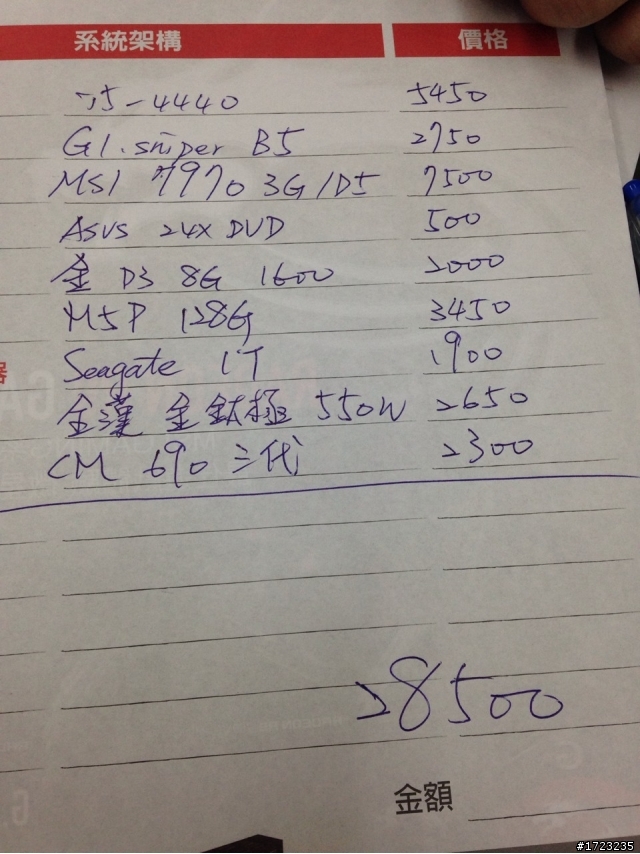 系統架構 價格
i5-4440 5450
G1.sniper B5 2750
MSI 7970 3G/D5 7500
ASUS 24X DVD 500
金 D3 8G 1600 2000
M5P 128G 3450
Seagate 1T 1900
全漢 金鈦極 550W 2650
CM 690 三代 2300
28500
金額
#1723235